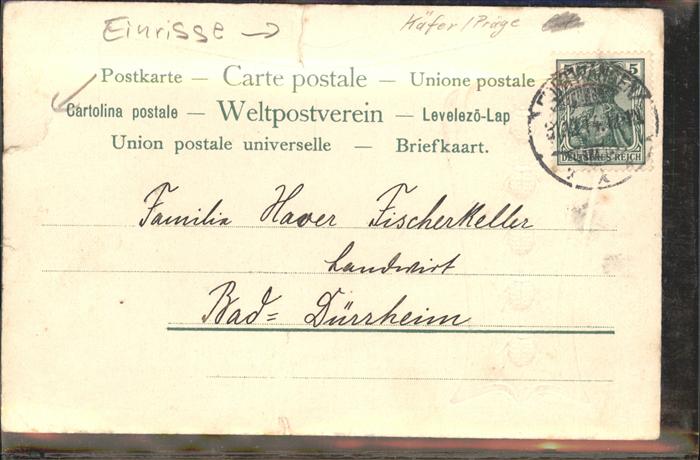 Einrisse →
Käfer/Präge
Postkarte — Carte postale — Unione postale
Cartolina postale — Weltpostverein — Levelezö-Lap
Union postale universelle — Briefkaart.
5 5
DEUTSCHES REICH
Familie Haver Fischerkeller
Landwirt
Bad= Dürrheim